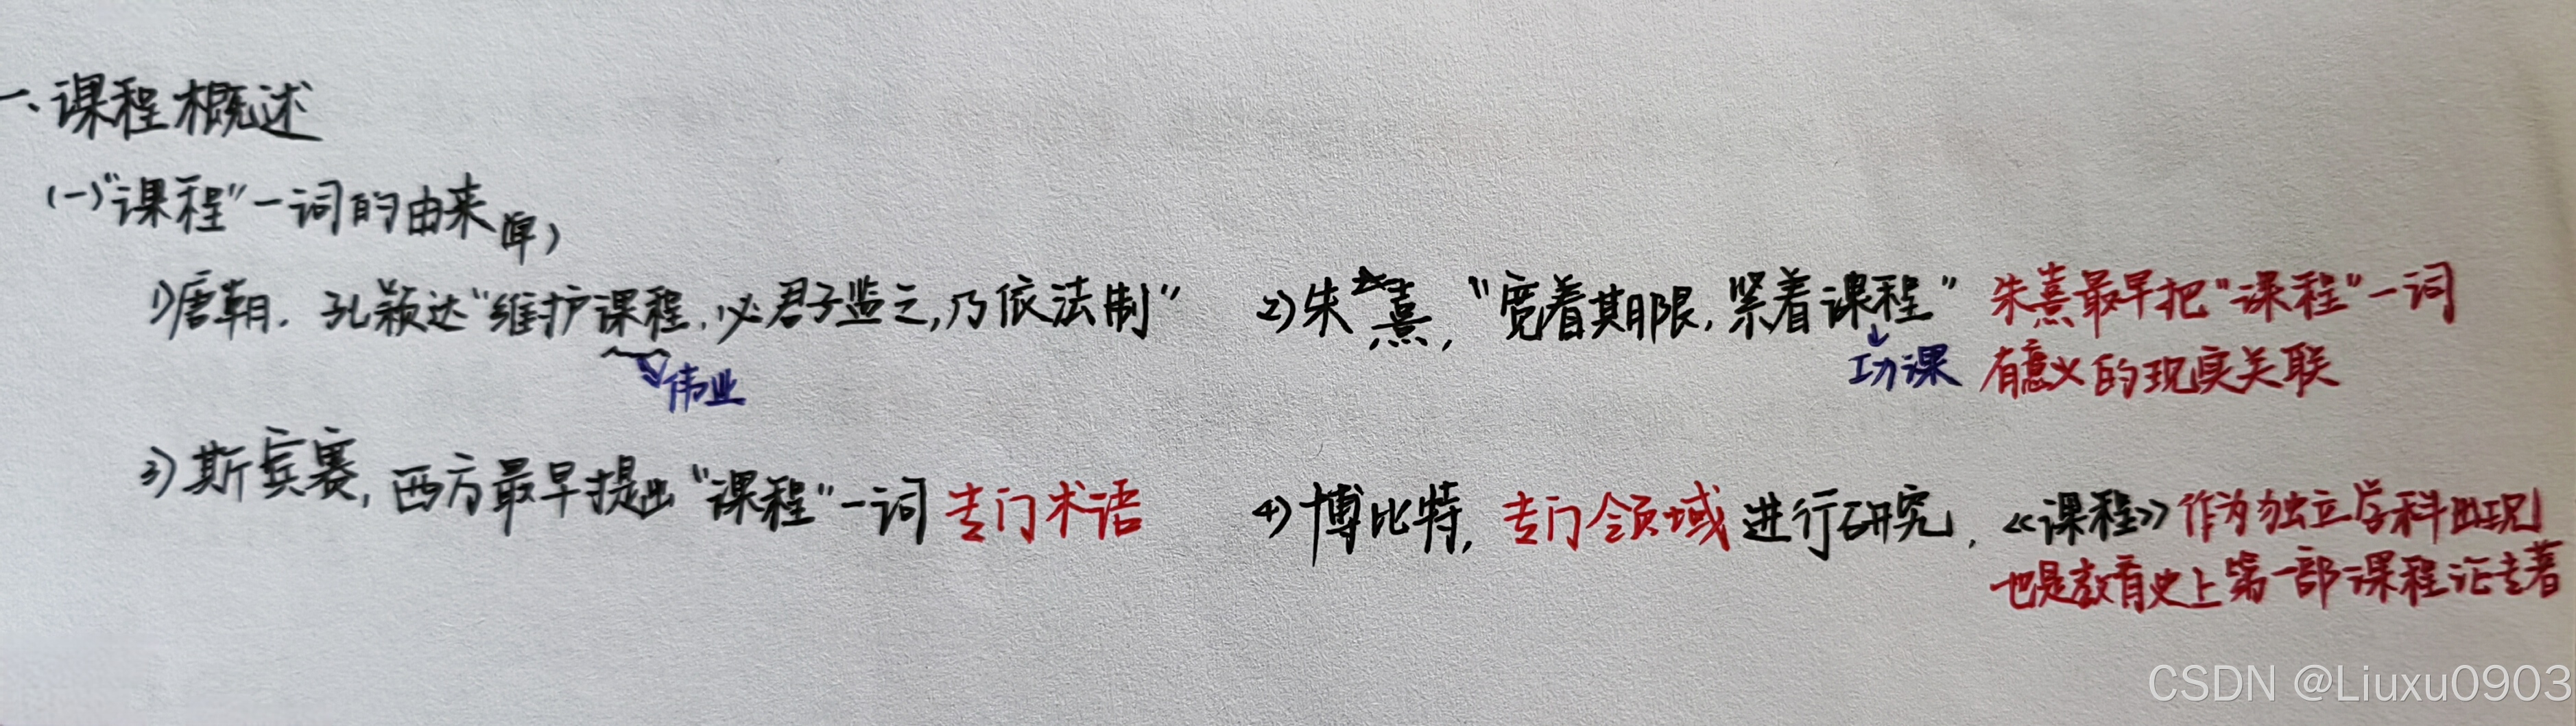 一、课程概述
(一)“课程”一词的由来(单)
1)唐朝. 孔颖达“维护课程, 必君子监之, 乃依法制”
伟业
2)朱熹, “宽着期限, 紧着课程”
功课
朱熹最早把“课程”一词
有意义的现实关联
3)斯宾赛, 西方最早提出“课程”一词 专门术语
4)博比特, 专门领域进行研究, 《课程》作为独立学科出现
也是教育史上第一部课程论专著
CSDN @Liuxu0903